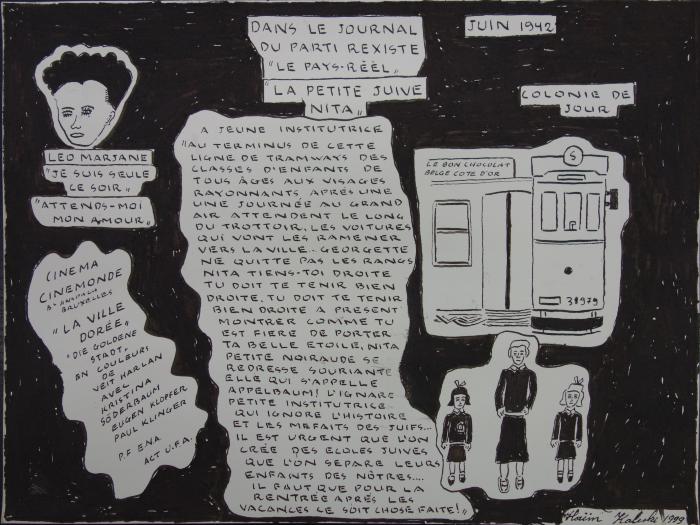 DANS LE JOURNAL
DU PARTI REXISTE
"LE PAYS-RÉEL"
"LA PETITE JUIVE
NITA"
JUIN 1942
COLONIE DE
JOUR
LEO MARJANE
"JE SUIS SEULE
CE SOIR"
"ATTENDS-MOI
MON AMOUR"
CINEMA
CINEMONDE
BRUXELLES
"LA VILLE
DORÉE"
"DIE GOLDENE
STADT"
EN COULEURS
DE
VEIT HARLAN
AVEC
KRISTINA
SÖDERBAUM
EUGEN KLOPFER
PAUL KLINGER
P.F ENA
ACT U.F.A.
A JEUNE INSTITUTRICE
"AU TERMINUS DE CETTE
LIGNE DE TRAMWAYS DES
CLASSES D'ENFANTS DE
TOUS ÂGES AUX VISAGES
RAYONNANTS APRES UNE
UNE JOURNÉE AU GRAND
AIR ATTENDENT LE LONG
DU TROTTOIR, LES VOITURES
QUI VONT LES RAMENER
VERS LA VILLE.. GEORGETTE
NE QUITTE PAS LES RANGS
NITA TIENS-TOI DROITE
TU DOIT TE TENIR BIEN
DROITE, TU DOIT TE TENIR
BIEN DROITE A PRESENT
MONTRER COMME TU
EST FIERE DE PORTER
TA BELLE ETOILE, NITA
PETITE NOIRAUDE SE
REDRESSE SOURIANTE
ELLE QUI S'APPELLE
APPELBAUM! L'IGNARE
PETITE INSTITUTRICE
QUI IGNORE L'HISTOIRE
ET LES MEFAITS DES JUIFS...
IL EST URGENT QUE L'ON
CRÉE DES ECOLES JUIVES
QUE L'ON SEPARE LEURS
ENFANTS DES NÔTRES....
IL FAUT QUE POUR LA
RENTRÉE APRÉS LES
VACANCES CE SOIT CHOSE FAITE!"
LE BON CHOCOLAT
BELGE COTE D'OR
S
38979
Haïm Kaliski 1999